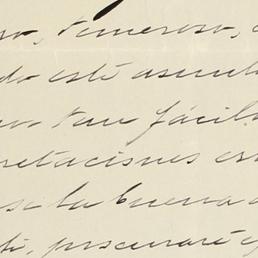 so, temeroso,
do esté asunto
tan fácil
pretaciones es
se la buena
ti, procuraré